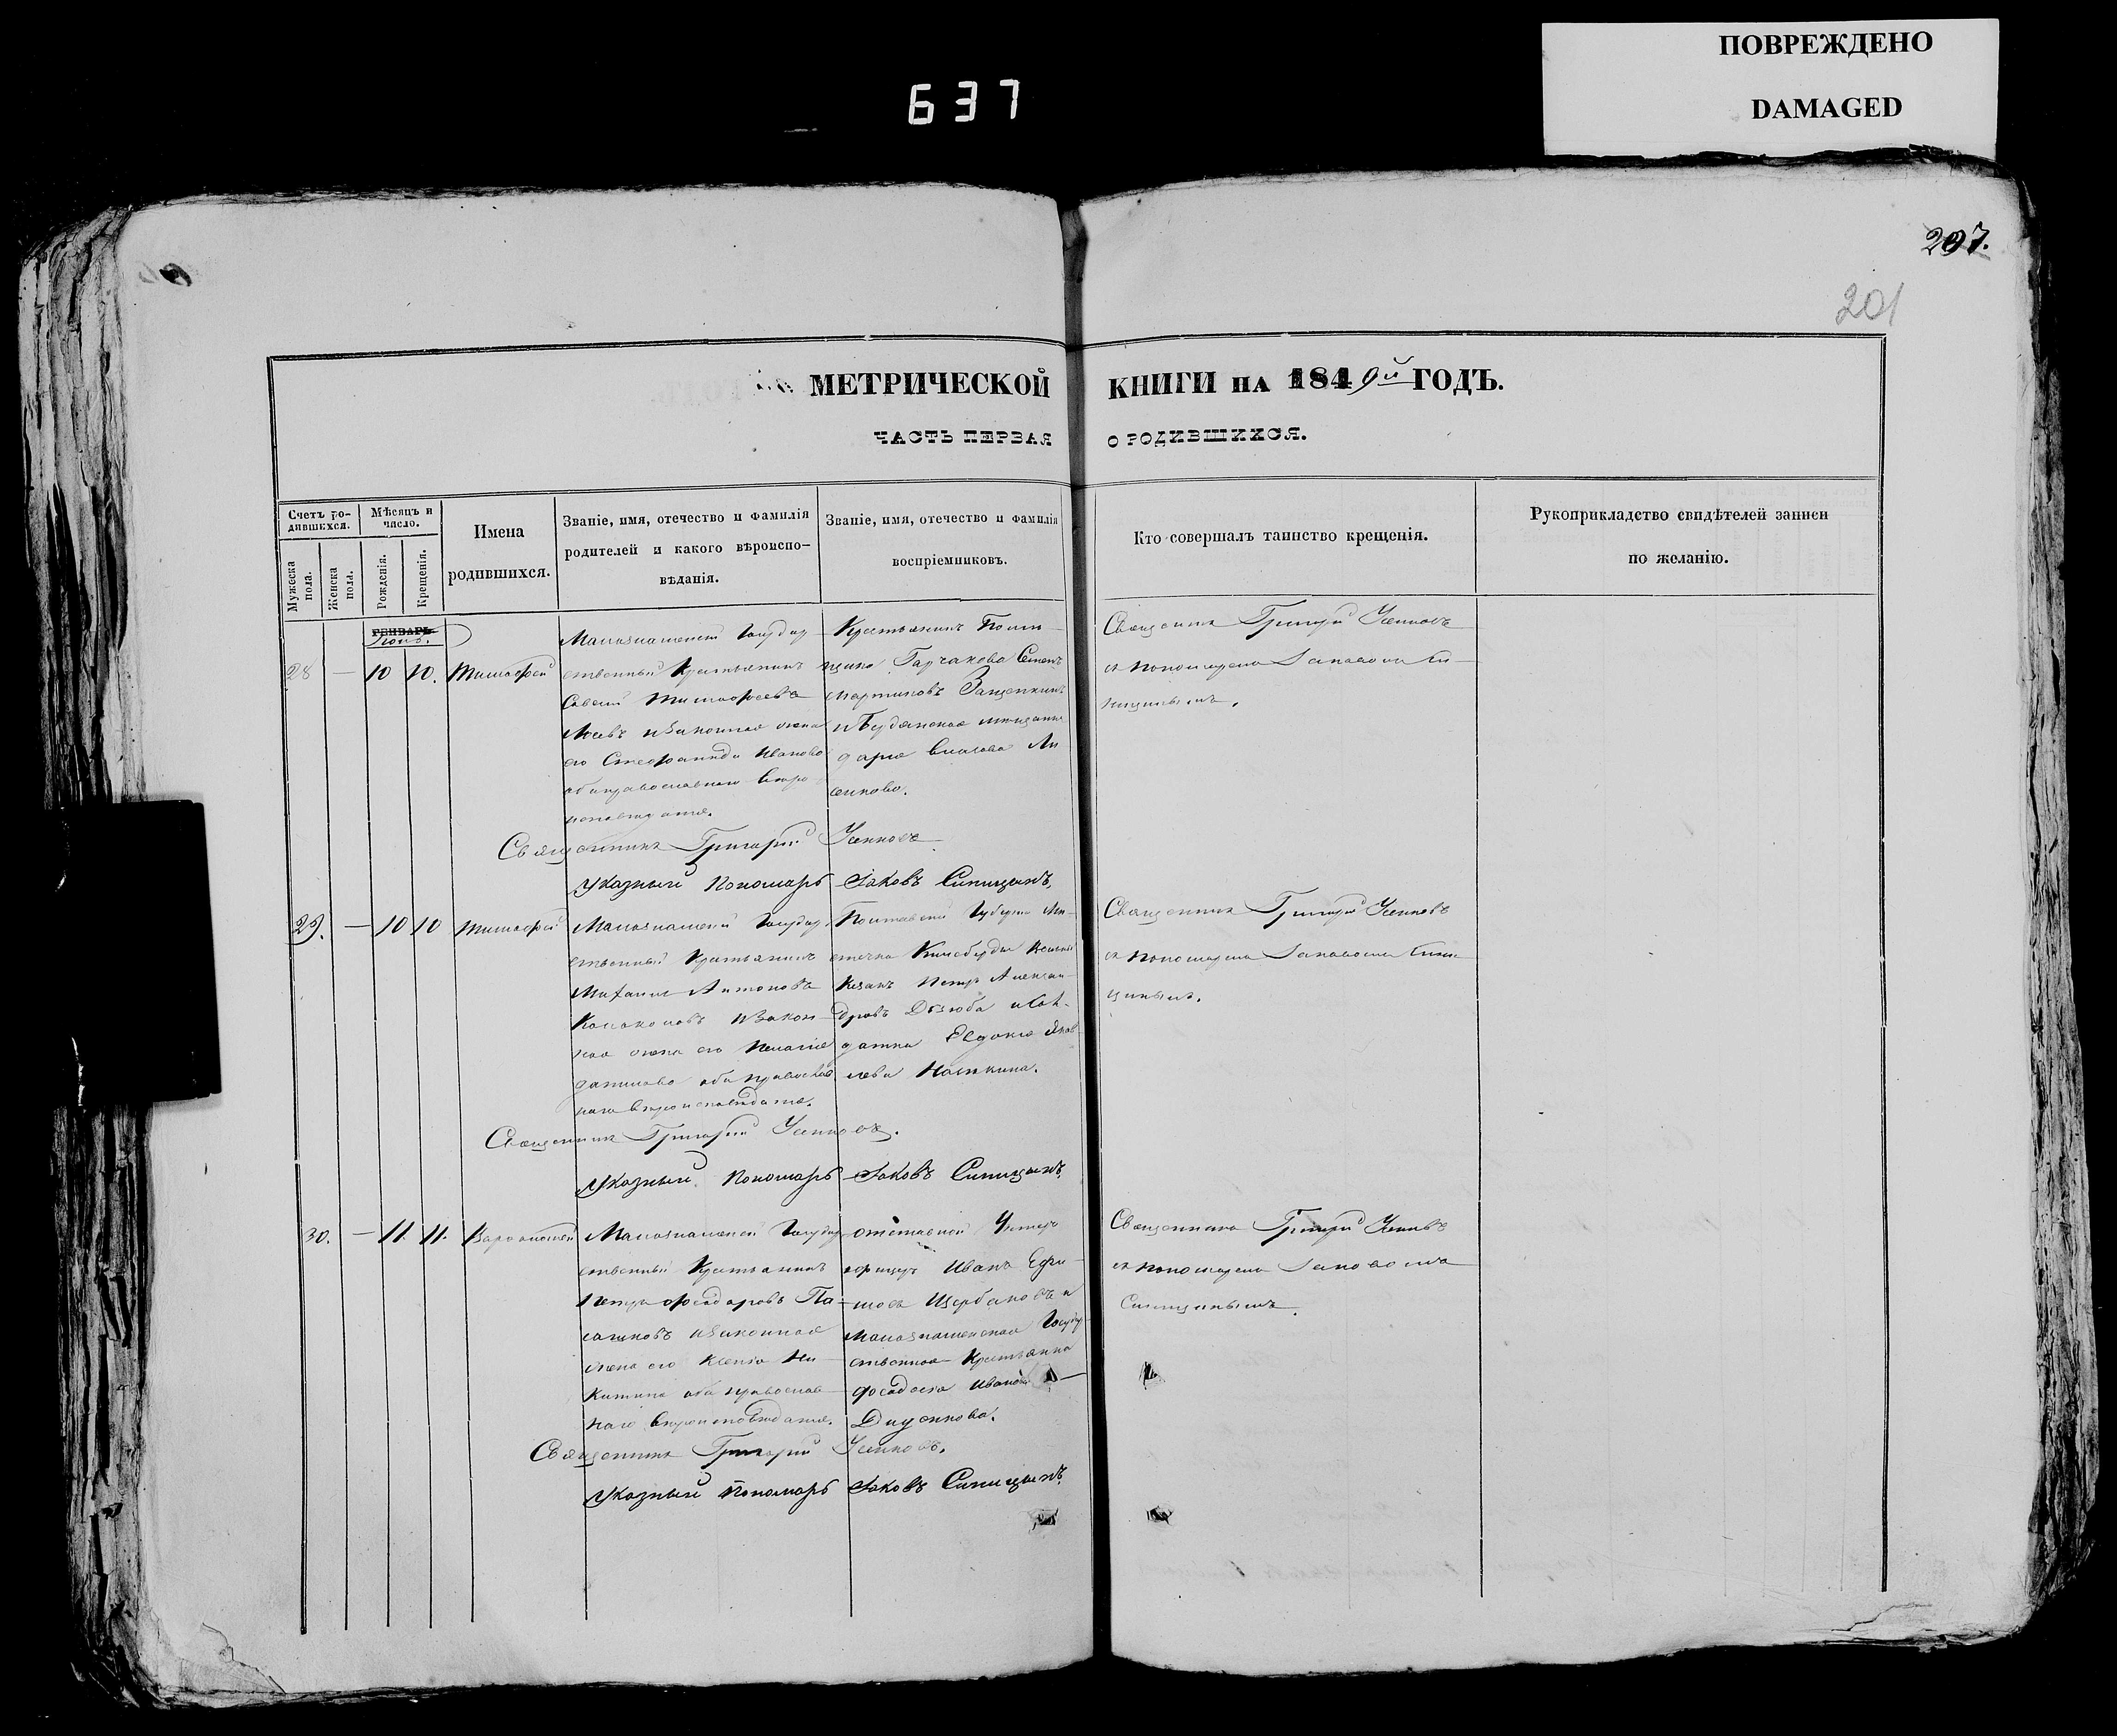 ПОВРЕЖДЕНО
DAMAGED
637
207.
201
МЕТРИЧЕСКОЙ КНИГИ НА 1849й ГОДЪ.
ЧАСТЬ ПЕРВАЯ О РОДИВШИХСЯ.
Счетъ ро-
дившихся.
Мужеска пола.
Женска пола.
Мѣсяцъ и
число.
Рожденія.
Крещенія.
Имена
родившихся.
Званіе, имя, отечество и фамилія
родителей и какого вѣроиспо-
вѣданія.
Званіе, имя, отечество и фамилія
воспріемниковъ.
Кто совершалъ таинство крещенія.
Рукоприкладство свидѣтелей записи
по желанію.
ГЕНВАРЬ.
Іюнь.
28 — 10 10. Тимофей
Государ
ственный Крестьянинъ
Тимофеевъ
и законная жена
его Стефанида Иванова
оба православнаго вѣро
исповеданія.
Крестьянинъ Помѣ
щика Гарчакова
Мартиновъ
и Бердянская мещанка
Дарія Власова Ли
сенкова.
Священникъ Григорій Усенковъ
съ пономаремъ Іаковомъ Си-
ницинымъ.
Священникъ Григорій Усенковъ
Указный Пономарь Іаковъ Синицынъ.
29. — 10 10 Тимофей
Государ
ственный Крестьянинъ
Михаилъ Антоновъ
и закон
ная жена его Пелагія
Данилова оба православ
наго вѣроисповѣданія.
Полтавской Губерніи Мѣ-
стечка Кишеберды
Казакъ Петръ Алексан-
дровъ Дзюба и Сол-
датка Евдокія Яков
лева
Священникъ Григорій Усенковъ
съ пономаремъ Іаковомъ Сини
цинымъ.
Священникъ Григорій Усенковъ.
Указный Пономарь Іаковъ Синицынъ.
30. — 11. 11. Варфоломей
Государ
ственный Крестьянинъ
Петръ Феодоровъ
и законная
жена его Ксенія Ни
китина оба православ
наго вѣроисповѣданія.
отставной Унтеръ
офицеръ Иванъ Ефи-
мовъ Щербаковъ и
Государ
ственная Крестьянка
Феодосія Иванова
Диденкова.
Священникъ Григорій Усенковъ
съ пономаремъ Іаковомъ
Синицинымъ.
Священникъ Григорій Усенковъ.
Указный Пономарь Іаковъ Синицынъ.